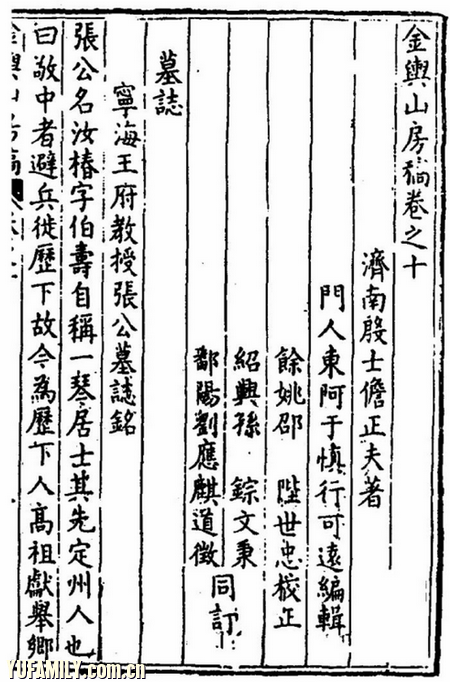 金輿山房稿卷之十
濟南殷士儋正夫著
門人東阿于慎行可遠編輯
餘姚邵 陛世忠校正
紹興孫 錝文秉
鄱陽劉應麒道徵 同訂
墓誌
寧海王府教授張公墓誌銘
張公名汝椿字伯壽自稱一琴居士其先定州人也
曰敬中者避兵徙歷下故今為歷下人高祖獻舉鄉
YUFAMILY.com.cn